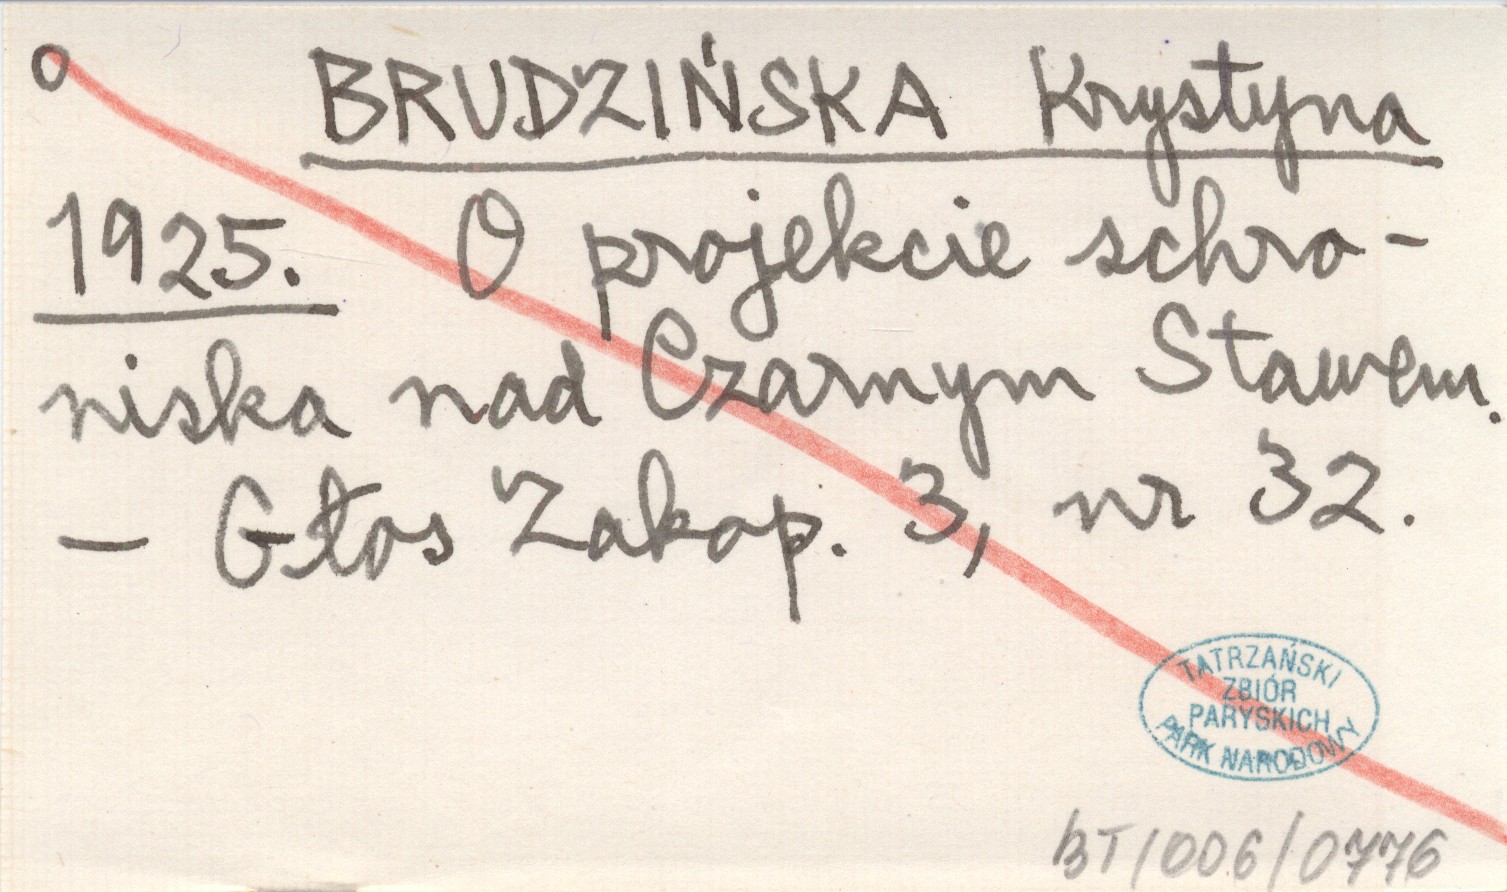 o BRUDZIŃSKA Krystyna
1925. O projekcie schro-
niska nad Czarnym Stawem.
— Głos Zakop. 3, nr 32.
TATRZAŃSKI
ZBIÓR
PARYSKICH
PARK NARODOWY
BT/006/0776